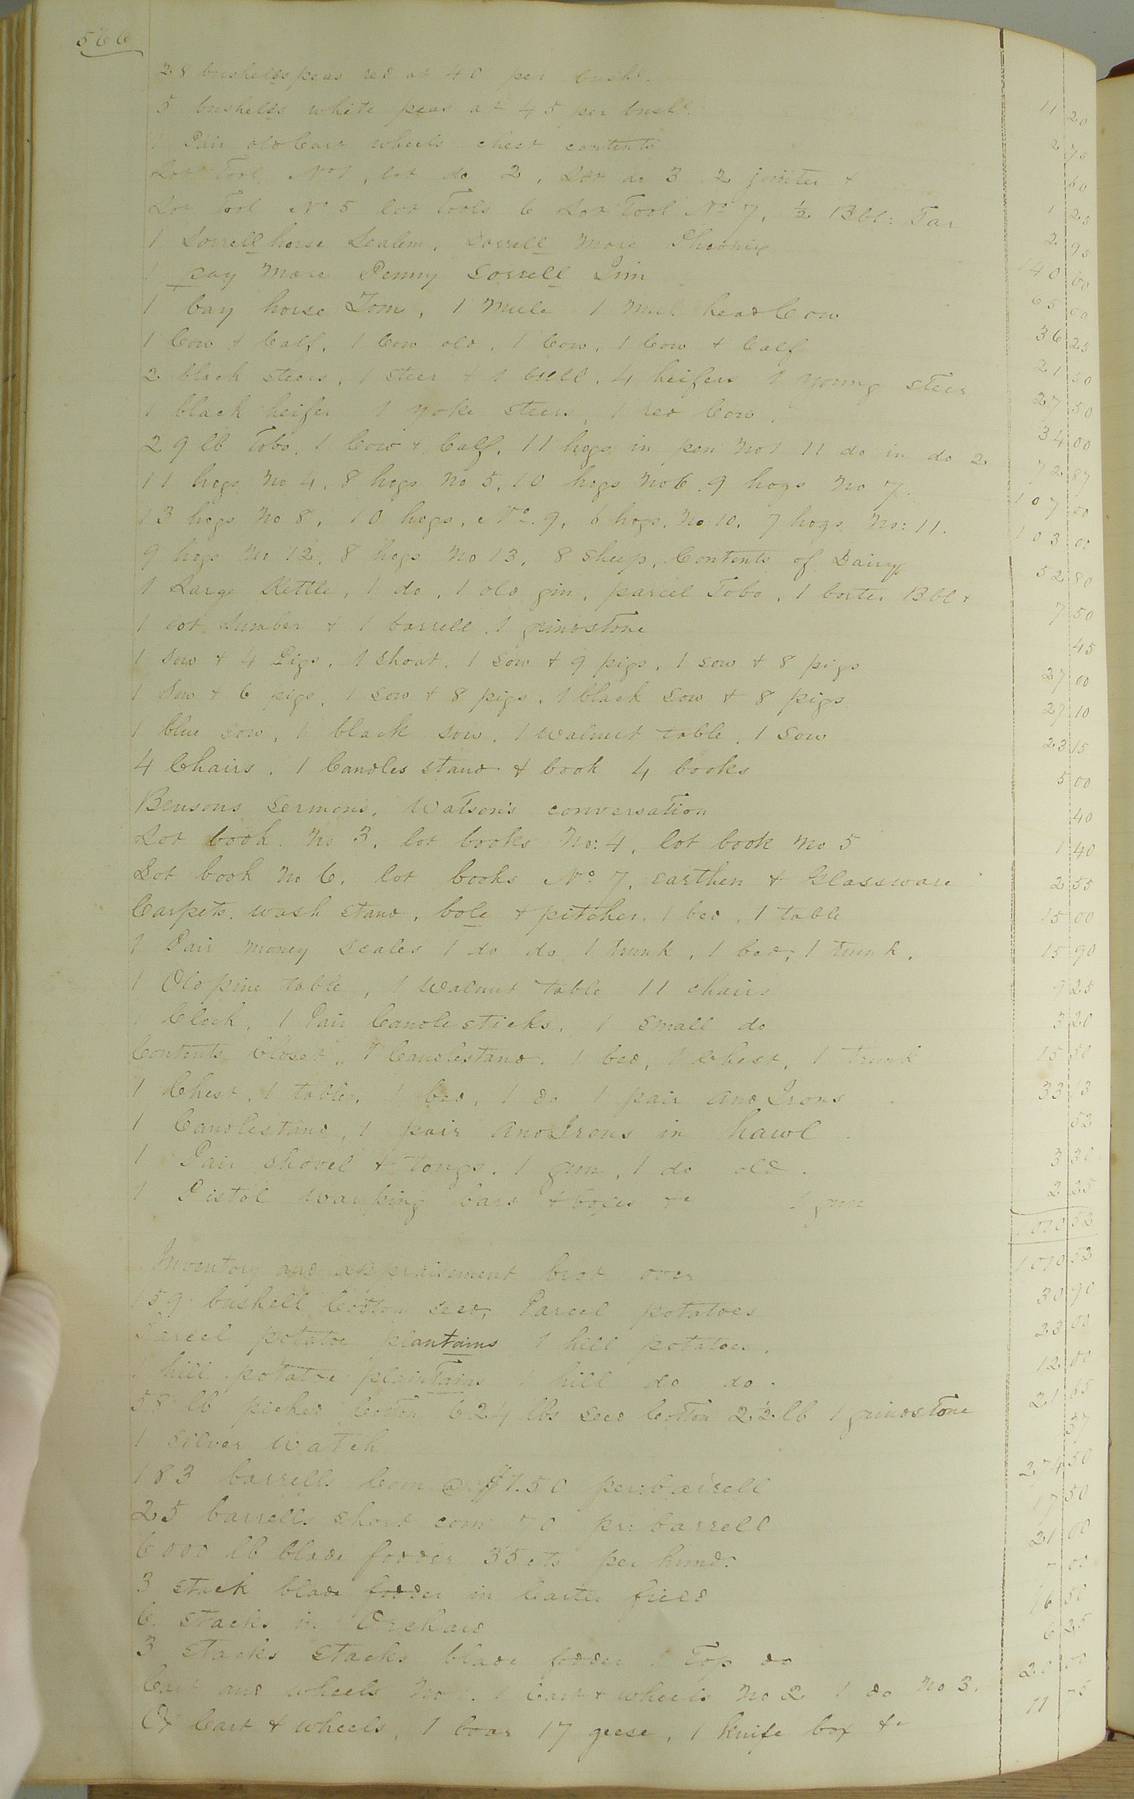 566
28 bushells peas red at 40 per bush. 11 20
5 bushells white peas at 45 per bush. 2
1 Pair old Cart wheels chest contents 60
Lot Tool No 1, lot do 2, Lot do 3 2 jointer + 1
Lot Tool No 5 lot Tools 6 Lot Tool No 7, ½ Bbl: Tar 2 95
1 Sorrell horse Salem, Sorrell mare Pheonix 140 00
1 bay mare Penny Sorrell Jim 65 00
1 bay horse Tom, 1 Mule 1 Mul head Cow 36 25
1 Cow & Calf, 1 Cow old, 1 Cow, 1 Cow & Calf 21
2 black steers, 1 steer & 1 bull, 4 heifers 1 young steer 27 50
1 black heifer 1 yoke steers, 1 red Cow 34 00
29 lb Tobo, 1 Cow & Calf, 11 hogs in pen No 1 11 do in do 2 72 87
11 hogs No 4, 8 hogs No 5, 10 hogs No 6, 9 hogs No 7 107 50
13 hogs No 8, 10 hogs, No. 9, 6 hogs, No 10, 7 hogs No: 11. 103 00
9 hogs No 12, 8 hogs No 13, 8 Sheep, Contents of Dairy 52 80
1 Large Kettle, 1 do, 1 old gin, parcel Tobo, 1 Bbl + 7 50
1 Lot Lumber & 1 barrell, 1 grindstone 45
1 Sow & 4 Pigs, 1 Shoat, 1 Sow & 9 pigs, 1 sow & 8 pigs 27 00
1 Sow & 6 pigs, 1 sow & 8 pigs, 1 black sow & 8 pigs 27 10
1 blue sow, 1 black sow, 1 walnut table, 1 Sow 23 15
4 Chairs, 1 Candles stand & book 4 books 5 00
Bensons Sermons, Watson's conversation 40
Lot book No 3, lot books No: 4, lot book No 5 1 40
Lot book No 6, lot books No 7, earthen & Glassware 2 55
Carpets, wash stand, bole & pitcher, 1 bed, 1 table 15 00
1 Pair money scales 1 do do 1 trunk, 1 bed, 1 trunk, 15 90
1 Old pine table, 1 Walnut table 11 chairs 9 25
1 Clock, 1 Pair Candlesticks, 1 small do 3 20
Contents Closet, 1 Candlestand, 1 bed, 1 Chest, 1 trunk 15 50
1 Chest, 1 table, 1 bed, 1 do 1 pair And Irons 33 13
1 Candlestand, 1 pair AndIrons in hawl 52
1 Pair shovel & tongs, 1 gun, 1 do old. 3 30
1 Pistol Warping bars & boxes &c 1 gun 2 25
1090 53
Inventory and appraisement brot over 1090 53
159 bushell Cotton seed, Parcel potatoes 30 90
Parcel potatoe plantains 1 hill potatoes. 23 00
1 hill potatoe plaintains 1 hill do do. 12 00
58 lb picked Cotton 624 lbs seed Cotton 22 lb 1 grindstone 21 65
1 Silver Watch 37
183 barrells Corn @ $1.50 per barrell 274 50
25 barrells short corn 70 pr: barrell 17 50
6000 lb blade fodder 35 cts per hund. 21 00
3 stack blade fodder in Carter field 00
6 stacks in Orchard 16 50
3 stacks stacks blade fodder 1 Top do 6 25
Cart and wheels No 1, 1 Cart & wheels No 2 1 do No 3. 20 00
Ox Cart & wheels, 1 boar 17 geese, 1 knife box &c 11 75